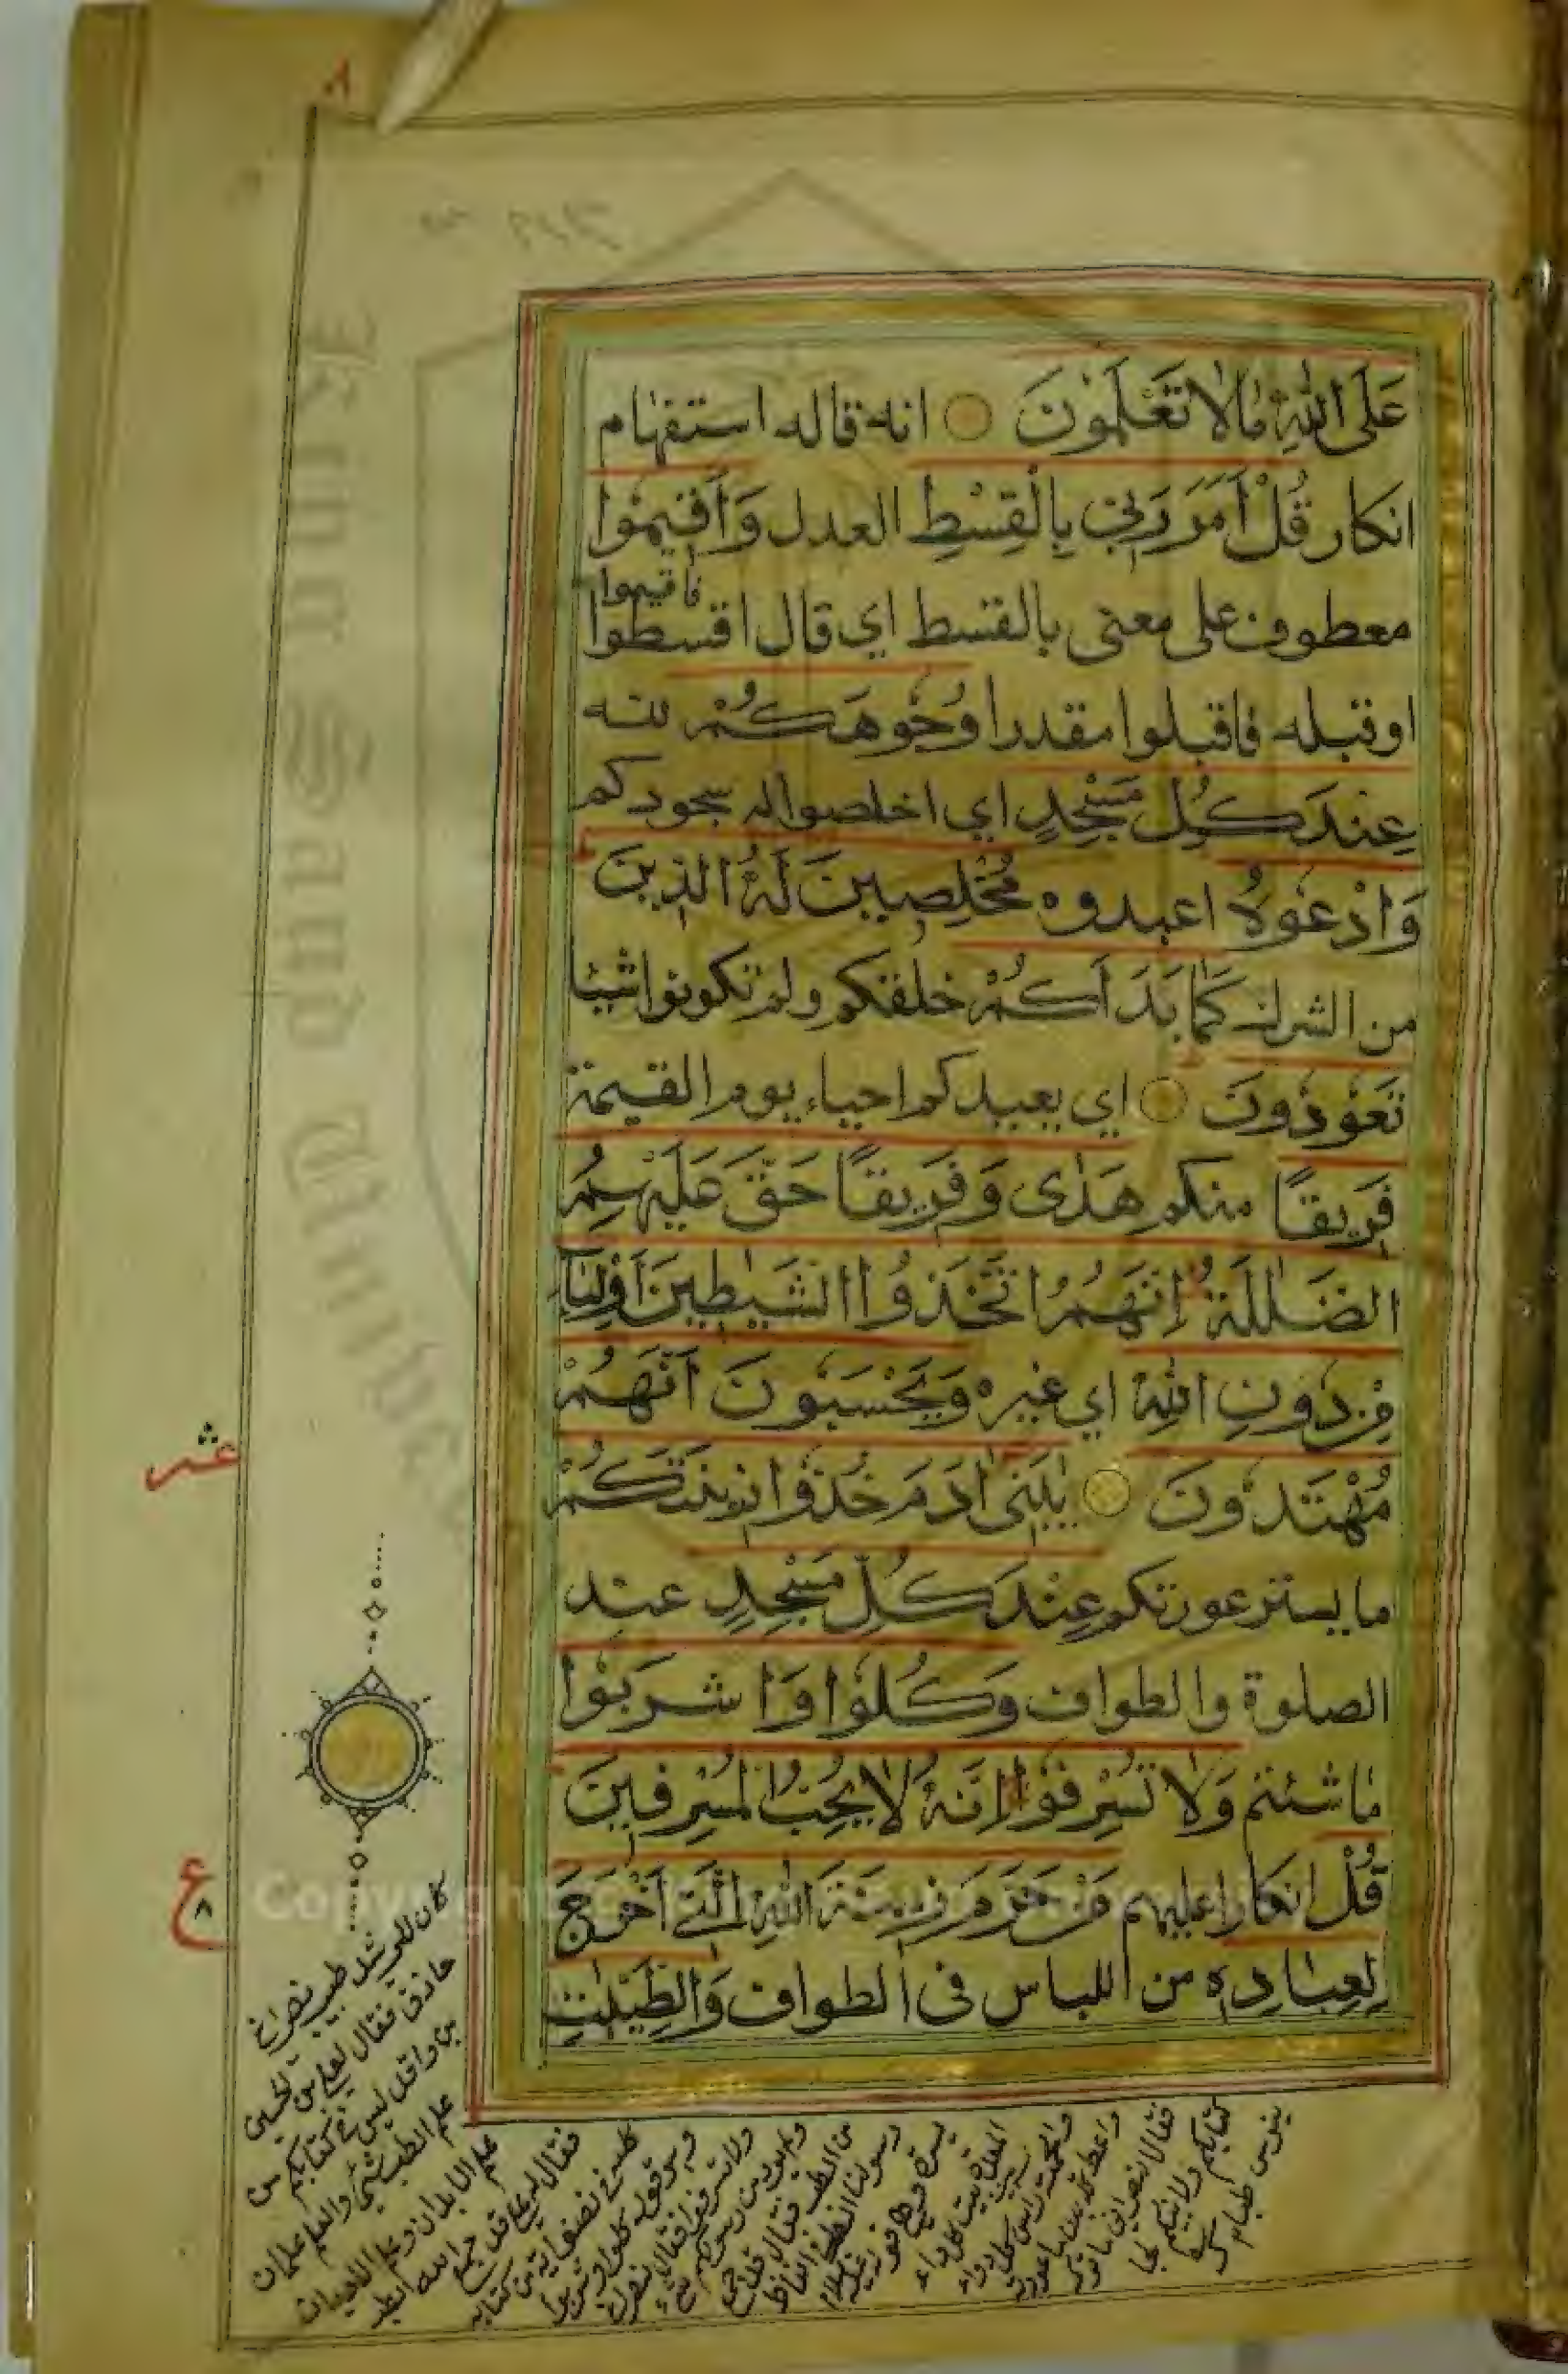 عَلَى اللّٰهِ مَا لَا تَعْلَمُونَ ○ انه قاله استفهام
انكار قُلْ اَمَرَ رَبِّي بِالْقِسْطِ العدل وَاَقِيمُوا
معطوف على معنى بالقسط اي قال اقسطوا فاقيموا
او قبله فاقبلوا مقدرا وُجُوهَكُمْ لله
عِنْدَ كُلِّ مَسْجِدٍ اي اخلصوا له سجودكم
وَادْعُوهُ اعبدوه مُخْلِصِينَ لَهُ الدِّينَ
من الشرك كَمَا بَدَاَكُمْ خلقكم ولم تكونوا شيئا
تَعُودُونَ ○ اي يعيدكم احياء يوم القيمة
فَرِيقًا منكم هَدٰى وَفَرِيقًا حَقَّ عَلَيْهِمُ
الضَّلٰلَةُ اِنَّهُمُ اتَّخَذُوا الشَّيٰطِينَ اَوْلِيَآءَ
مِنْ دُونِ اللّٰهِ اي غيره وَيَحْسَبُونَ اَنَّهُمْ
مُهْتَدُونَ ○ يٰبَنِي اٰدَمَ خُذُوا زِينَتَكُمْ
ما يستر عورتكم عِنْدَ كُلِّ مَسْجِدٍ عند
الصلوة والطواف وَكُلُوا وَاشْرَبُوا
ما شئتم وَلَا تُسْرِفُوا اِنَّهُ لَا يُحِبُّ الْمُسْرِفِينَ
قُلْ انكارا عليهم مَنْ حَرَّمَ زِينَةَ اللّٰهِ الَّتِي اَخْرَجَ
لِعِبَادِهِ من اللباس في الطواف وَالطَّيِّبٰتِ
عشر
ع
٨
كان للرشيد طبيب نصراني
حاذق فقال لعلي بن الحسين
بن واقد ليس في كتابكم من
علم الطب شيء والعلم علمان
علم الابدان وعلم الاديان
فقال له علي قد جمع الله الطب
كله في نصف اية من كتابه
وهو قوله كلوا واشربوا
ولا تسرفوا فقال النصراني
ولم يرد من رسولكم شيء
من الطب فقال قد جمع
رسولنا الطب في الفاظ
يسيرة وهي قوله عليه السلام
المعدة بيت كل داء
والحمية راس كل دواء
واعط كل بدن ما عودته
فقال النصراني ما ترك
كتابكم ولا نبيكم لجا
لينوس طبا
Copyright